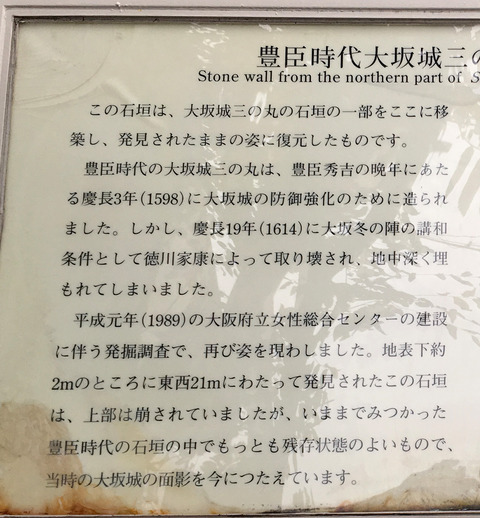 豊臣時代大坂城三の
Stone wall from the northern part of S
この石垣は、大坂城三の丸の石垣の一部をここに移
築し、発見されたままの姿に復元したものです。
豊臣時代の大坂城三の丸は、豊臣秀吉の晩年にあた
る慶長3年(1598)に大坂城の防御強化のために造られ
ました。しかし、慶長19年(1614)に大坂冬の陣の講和
条件として徳川家康によって取り壊され、地中深く埋
もれてしまいました。
平成元年(1989)の大阪府立女性総合センターの建設
に伴う発掘調査で、再び姿を現わしました。地表下約
2mのところに東西21mにわたって発見されたこの石垣
は、上部は崩されていましたが、いままでみつかった
豊臣時代の石垣の中でもっとも残存状態のよいもので、
当時の大坂城の面影を今につたえています。